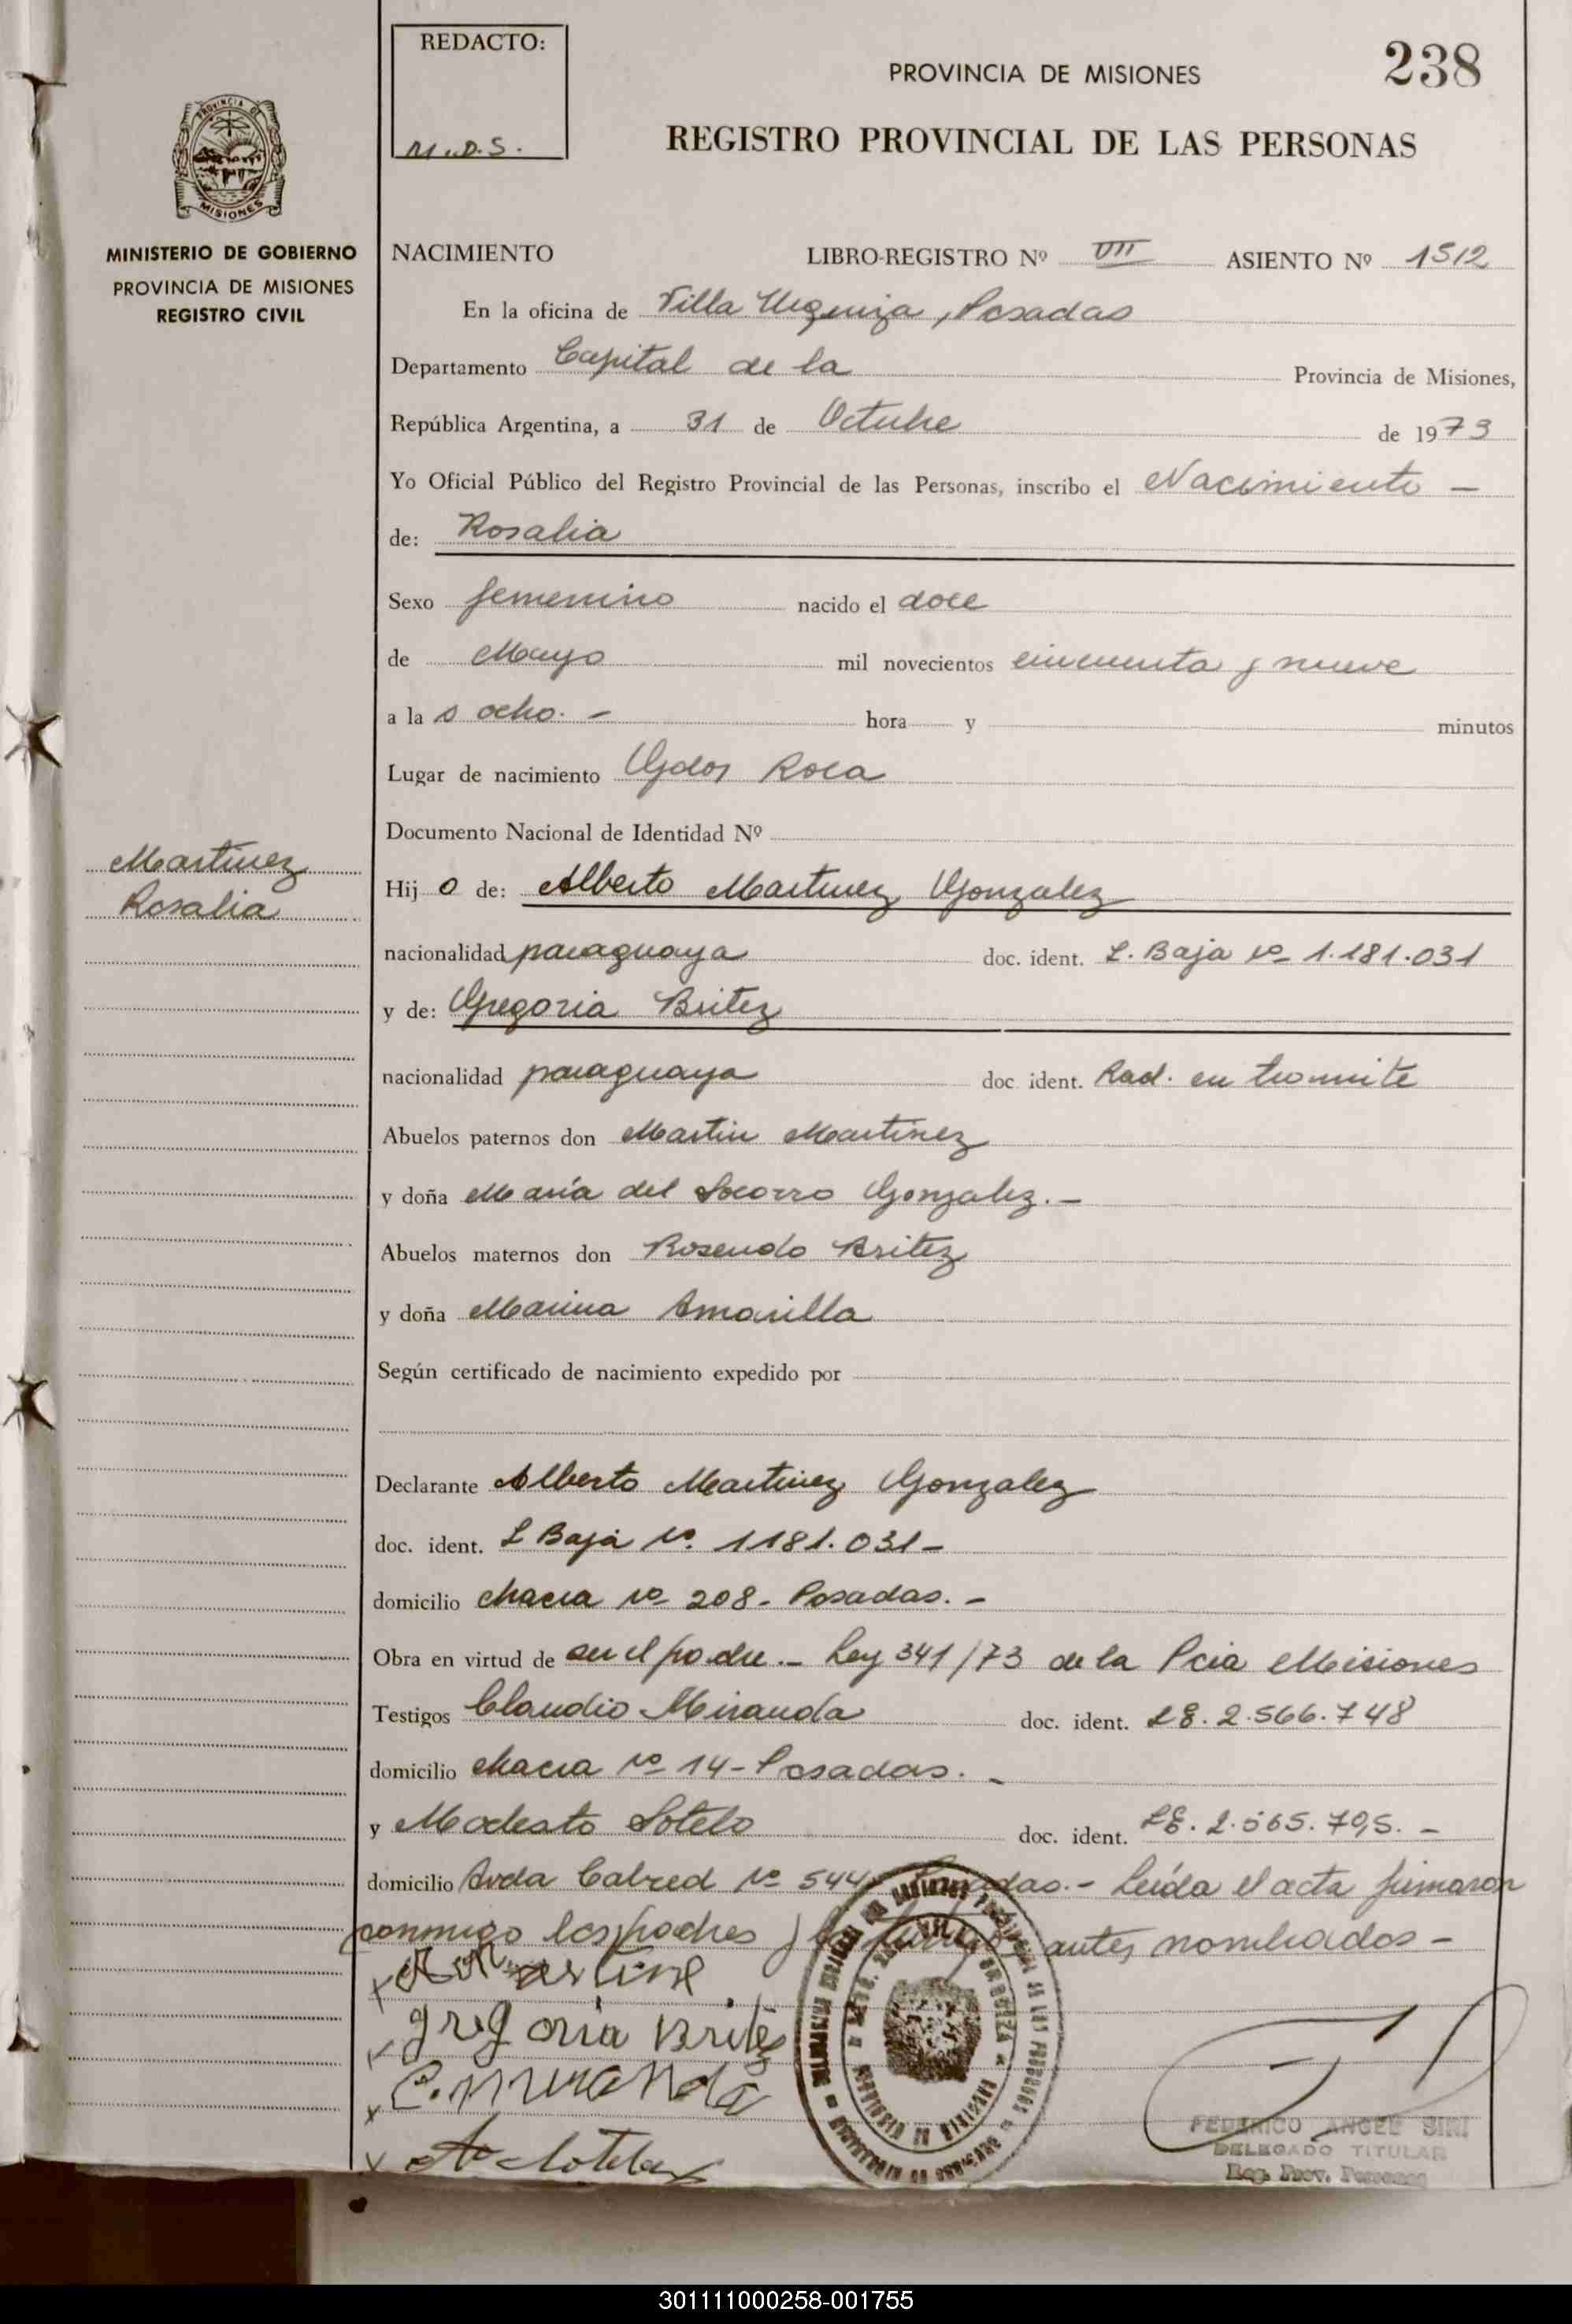 REDACTO:
M.D.S.
238
PROVINCIA DE MISIONES
REGISTRO PROVINCIAL DE LAS PERSONAS
PROVINCIA DE
MISIONES
MINISTERIO DE GOBIERNO
PROVINCIA DE MISIONES
REGISTRO CIVIL
NACIMIENTO LIBRO-REGISTRO Nº VIII ASIENTO Nº 1512
En la oficina de Villa Urquiza, Posadas
Departamento Capital de la Provincia de Misiones,
República Argentina, a 31 de Octubre de 1973
Yo Oficial Público del Registro Provincial de las Personas, inscribo el Nacimiento -
de: Rosalia
Sexo femenino nacido el doce
de Mayo mil novecientos cincuenta y nueve
a la s ocho. - hora y minutos
Lugar de nacimiento Gdor Roca
Documento Nacional de Identidad Nº
Martinez
Rosalia
Hij o de: Alberto Martinez Gonzalez
nacionalidad paraguaya doc. ident. L. Baja Nº 1.181.031
y de: Gregoria Britez
nacionalidad paraguaya doc. ident. Rad. en tramite
Abuelos paternos don Martin Martinez
y doña María del Socorro Gonzalez. -
Abuelos maternos don Rosendo Britez
y doña Marina Amarilla
Según certificado de nacimiento expedido por
Declarante Alberto Martinez Gonzalez
doc. ident. L Baja Nº. 1181.031-
domicilio chacra Nº 208- Posadas. -
Obra en virtud de ser el padre. - Ley 341/73 de la Pcia Misiones
Testigos Claudio Miranda doc. ident. LE. 2.566.748
domicilio chacra Nº 14-Posadas. -
y Modesto Sotelo doc. ident. LE. 2.565.705. -
domicilio Avda Cabred Nº 544 Posadas. - Leída el acta firmaron
conmigo los padres y los testigos antes nombrados -
x
x gregoria Britez
x C. miranda
x
FEDERICO ANGEL SIRI
DELEGADO TITULAR
Reg. Prov. Personas
301111000258-001755